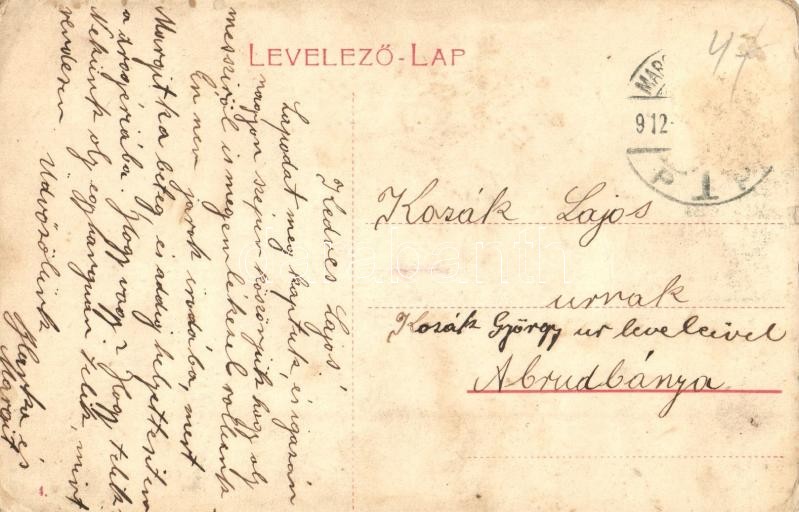 LEVELEZŐ-LAP
47
MAR
912
P T P
Kedves Lajos!
Lapodat meg kaptuk, és igazán
nagyon szépen köszönjük hogy oly
messziről is megemlékezel rollunk
Én nem járok irodába, mert
Margitka beteg és addig helyettesitem
a drogériába. Hogy vagy? Hogy telik
Nekünk oly egyhanguan telik, mint
rendesen. Üdvözölünk
és
Margit
Kozák Lajos
urnak
Kozák György ur leveleivel
Abrudbánya
4.